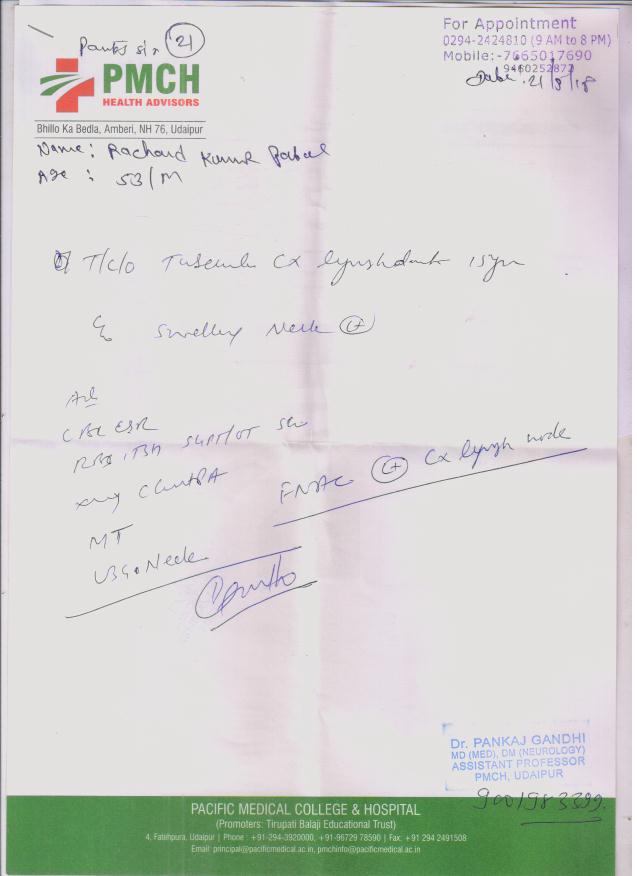 21
For Appointment
0294-2424810 (9 AM to 8 PM)
Mobile:-7665017690
9460252872
Date: 21/8/18
PMCH
HEALTH ADVISORS
Bhillo Ka Bedla, Amberi, NH 76, Udaipur
Name: Kumar
Age : 53/M
T/C/O Cx 15yr
Swelling Neck +
Adv
CBC ESR
SGPT/OT
xray Chest PA
FNAC + Cx lymph node
MT
USG Neck
Dr. PANKAJ GANDHI
MD (MED), DM (NEUROLOGY)
ASSISTANT PROFESSOR
PMCH, UDAIPUR
9001983399
PACIFIC MEDICAL COLLEGE & HOSPITAL
(Promoters: Tirupati Balaji Educational Trust)
4, Fatehpura, Udaipur | Phone : +91-294-3920000, +91-96729 78590 | Fax: +91 294 2491508
Email: principal@pacificmedical.ac.in, pmchinfo@pacificmedical.ac.in